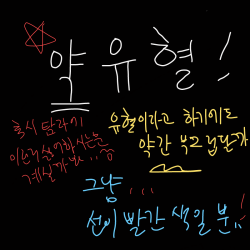 약 유혈!
혹시 탐라에
이런거 싫어하시는분
계실까봐...
유혈이라고 하기에도
약간 부끄럽달까
그냥...
선이 빨간 색일 뿐..!